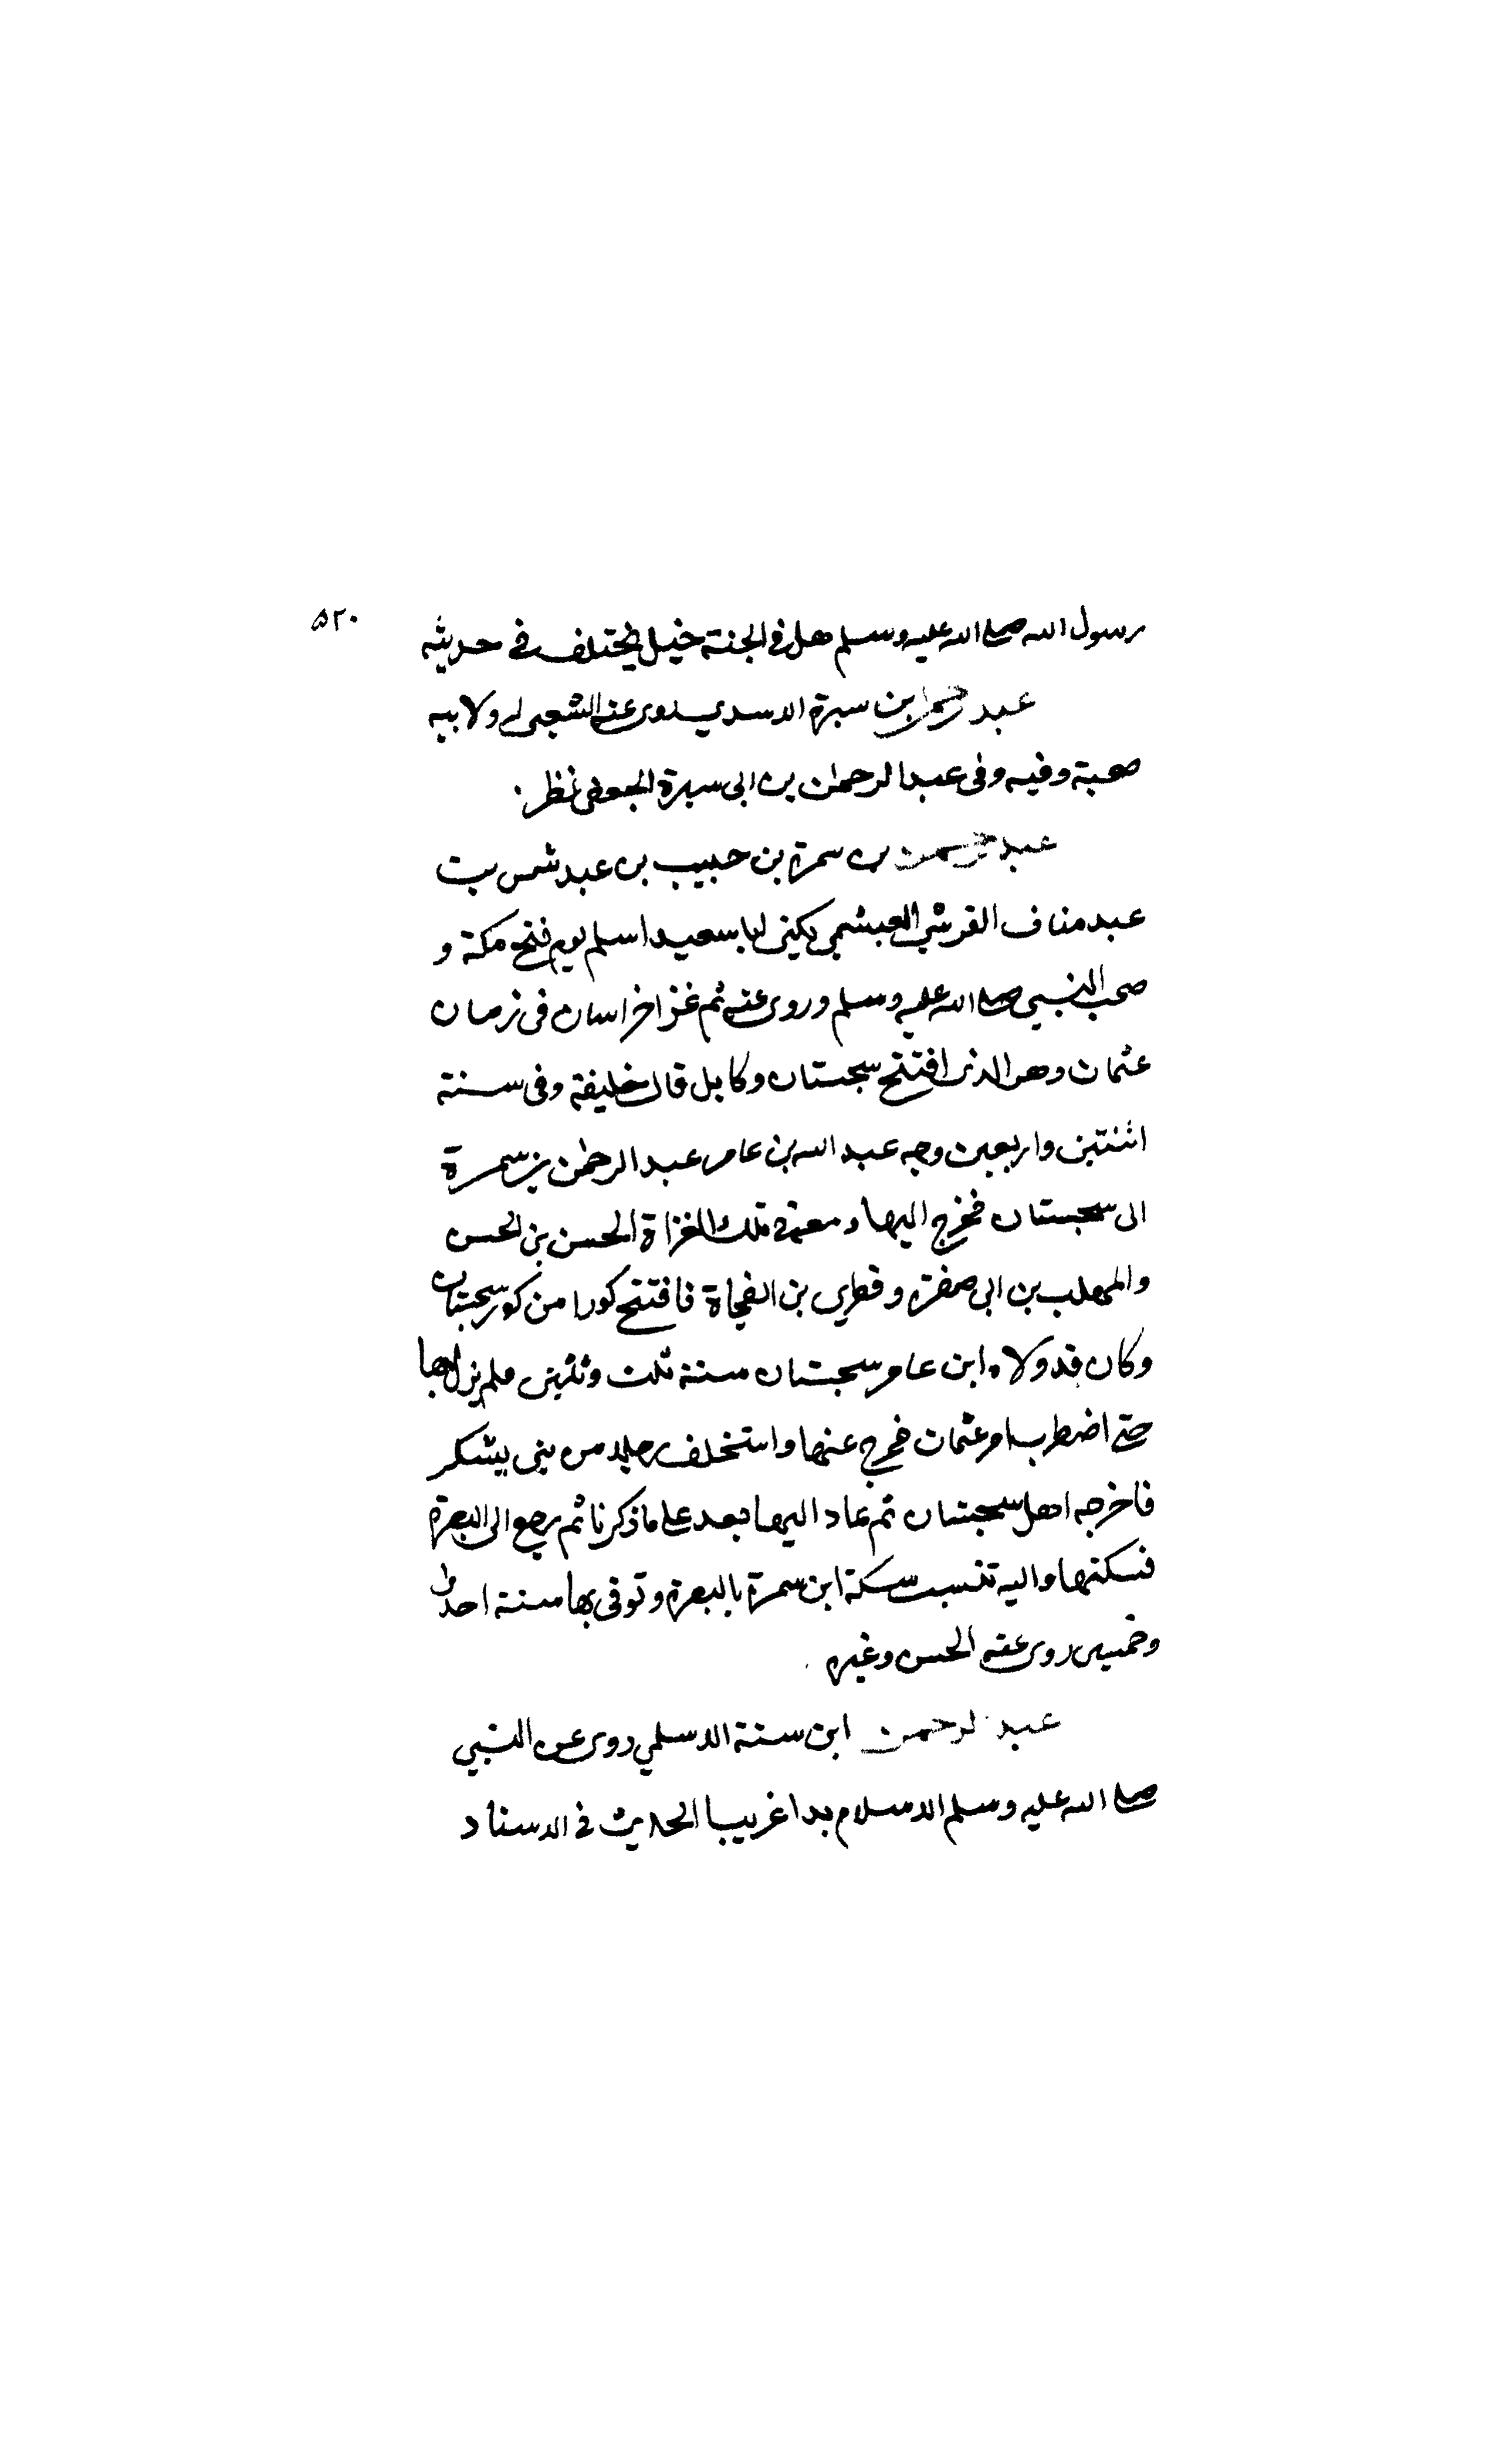 ٥٢٠
رسول الله صلى الله عليه وسلم هل في الجنة خيل يختلف في حديثه
عبد الرحمن بن سبرة الاسدي روى عنه الشعبي له ولابيه
صحبة وفيه وفى عبد الرحمن بن ابى سبرة الجعفى نظر.
عبد الرحمن بن سمرة بن حبيب بن عبد شمس بن
عبد مناف القرشي العبشمي يكنى ابا سعيد اسلم يوم فتح مكة و
صحب النبي صلى الله عليه وسلم وروى عنه ثم غزا خراسان فى زمان
عثمان وهو الذى افتتح سجستان وكابل قال خليفة وفى سنة
اثنتين واربعين وجه عبد الله بن عامر عبد الرحمن بن سمرة
الى سجستان فخرج اليها ومعه في تلك الغزاة الحسن بن الحسن
والمهلب بن ابى صفرة وقطري بن الفجاة فافتتح كورا من كور سجستان
وكان قد ولاه ابن عامر سجستان سنة ثلث وثلثين فلم يزل بها
حتى اضطرب امر عثمان فخرج عنها واستخلف رجلا من بنى يشكر
فاخرجه اهل سجستان ثم عاد اليها بعد على ما ذكرنا ثم رجع الى البصرة
فسكنها واليه تنسب سكة ابن سمرة بالبصرة وتوفى بها سنة احدى
وخمسين روى عنه الحسن وغيره.
عبد الرحمن ابن سنة الاسلمي روى عن النبي
صلى الله عليه وسلم الاسلام بدا غريبا الحديث في الاسناد